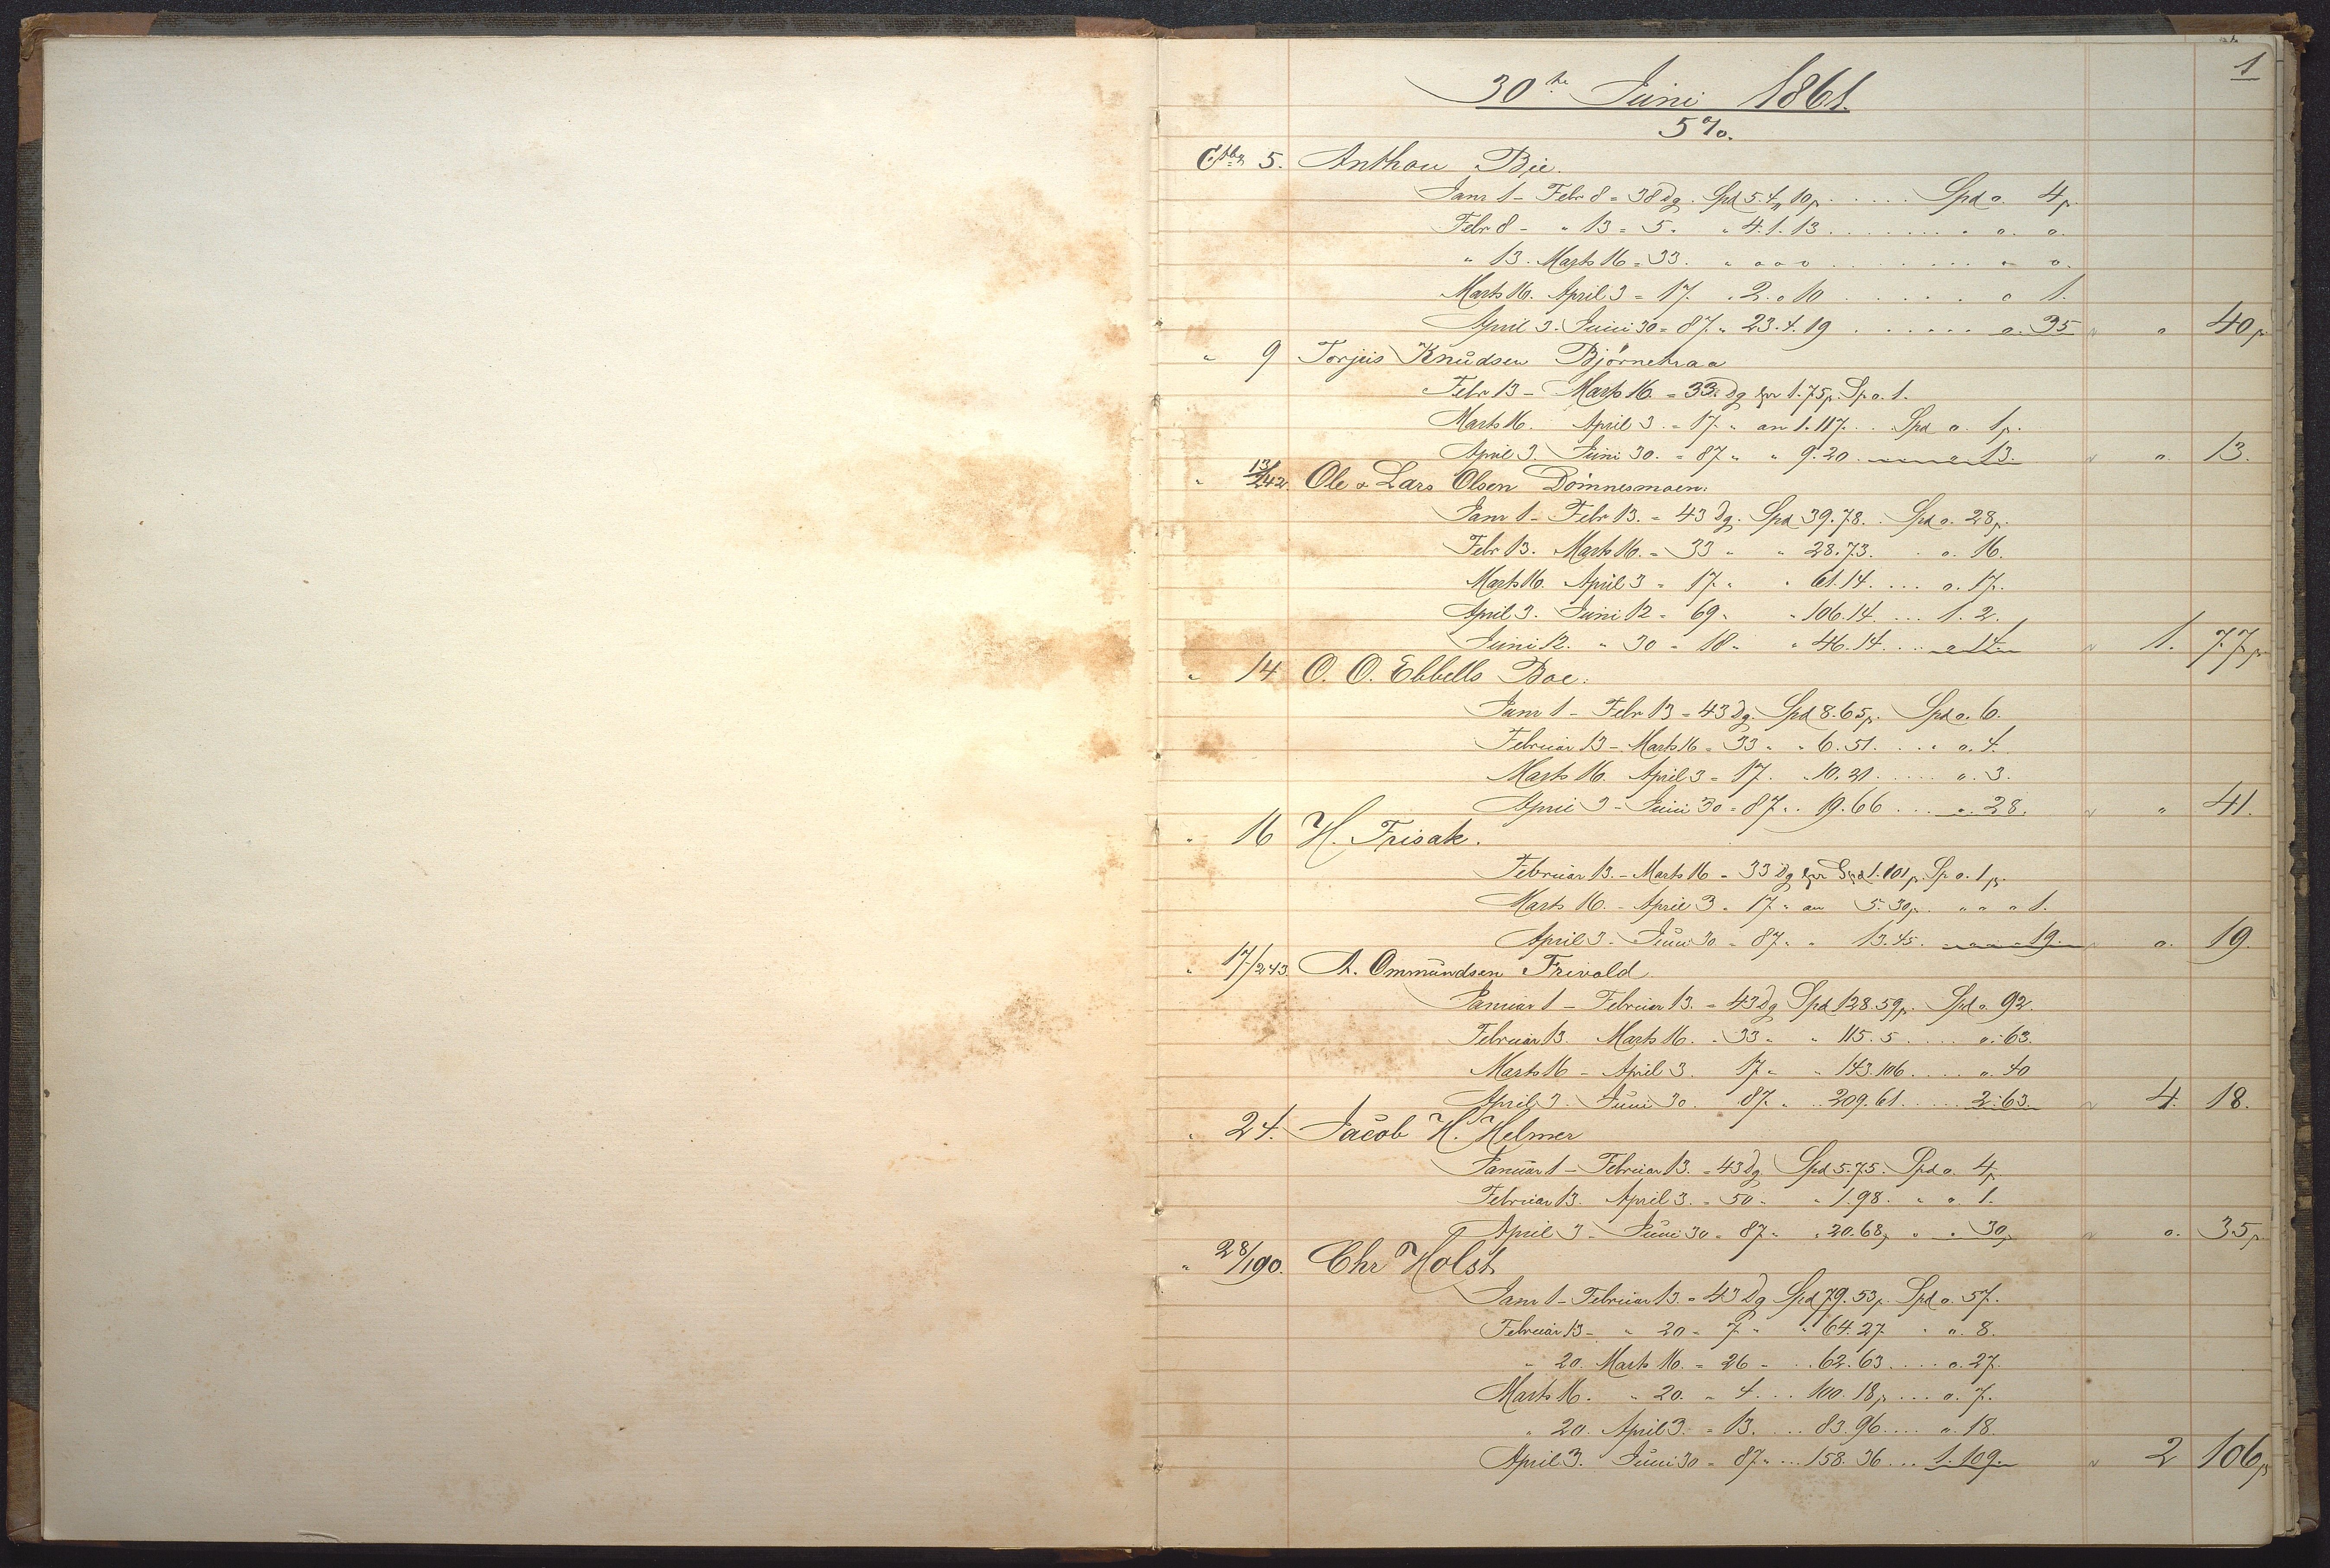 1
30te Juni 1861.
5%.
5. Anthon Bie.
Janr 1 - Febr 8 = 38 Dg. Spd 5.4.10 p. . . . . . Spd o. 4 p.
Febr 8 - " 13 = 5. " 4.1.13 . . . . . . . . " o. o.
" 13. Marts 16 = 33. " o o o . . . . . . . . " o.
Marts 16. April 3 = 17. " 2. o 10 . . . . . . o 1.
April 3. Juni 30 = 87. " 23.4.19 . . . . . . o. 35 " o 40 p.
" 9 Torjus Knudsen Bjørnetraa
Febr 13 - Marts 16. = 33. Dg 1.75 p. Sp o. 1.
Marts 16. April 3. = 17. " an 1.117. . . Spd o. 1 p.
April 3. Juni 30. = 87 " " 9.20. 13. " o. 13.
" 13/242. Ole & Lars Olsen Dømnesmoen.
Janr 1 - Febr 13. = 43 Dg. Spd 39.78. . Spd o. 28 p.
Febr 13. Marts 16. = 33 " " 28.73. . . o. 16.
Marts 16. April 3 = 17. " " 61.14. . . . o. 17.
April 3. Juni 12 = 69. " " 106.14. . . . 1. 2.
Juni 12. " 30 = 18 " " 46.14. . . . o 14. " 1. 77 p.
" 14 O. O. Ebbells Boe.
Janr 1 - Febr 13 = 43 Dg. Spd 8.65 p. Spd o. 6.
Februar 13 - Marts 16 = 33 " " 6.51. . . . o. 4.
Marts 16. April 3 = 17. " 10.21. . . . . o. 3.
April 3 - Juni 30 = 87 " . 19.66 . . . o. 28. " " 41.
" 16 H. Frisak.
Februar 13. - Marts 16 = 33 Dg Spd 1.101 p. Sp o. 1 p.
Marts 16. - April 3 = 17. " an 5.30 p. " " " 1.
April 3 - Juni 30 = 87. " " 13.45. 19. " o. 19.
" 17/243. A. Ommundsen Frivold.
Januar 1 - Februar 13. = 43 Dg Spd 128.59 p. Spd o. 92.
Februar 13. Marts 16. = 33 " " 115.5 . . . . o. 63.
Marts 16 - April 3. 17 " " 143.106. . . . o. 40
April 3. Juni 30. 87. " . 209.61. . . . 2.63. " 4. 18.
" 24. Jacob H. Helmer
Januar 1 - Februar 13. = 43 Dg. Spd 5.75. Spd o. 4 p.
Februar 13. April 3. = 50 " " 1.98. " o 1.
April 3 - Juni 30 = 87 " " 20.68 p. " . 30 p. " o. 35 p.
" 28/190. Chr Holst
Janr 1 - Februar 13. = 43 Dg Spd 79.53 p. Spd o. 57.
Februar 13 - " 20 = 7 " " 64.27. " o. 8.
" 20. Marts 16. = 26 " . . 62.63. . . . o. 27.
Marts 16. " 20. = 4. . . 100.18 p. . . . o. 7.
" 20. April 3. = 13. . . . 83.96. . . . o. 18.
April 3. Juni 30 = 87 " . . . 158.36 . . . 1.109. " 2 106 p